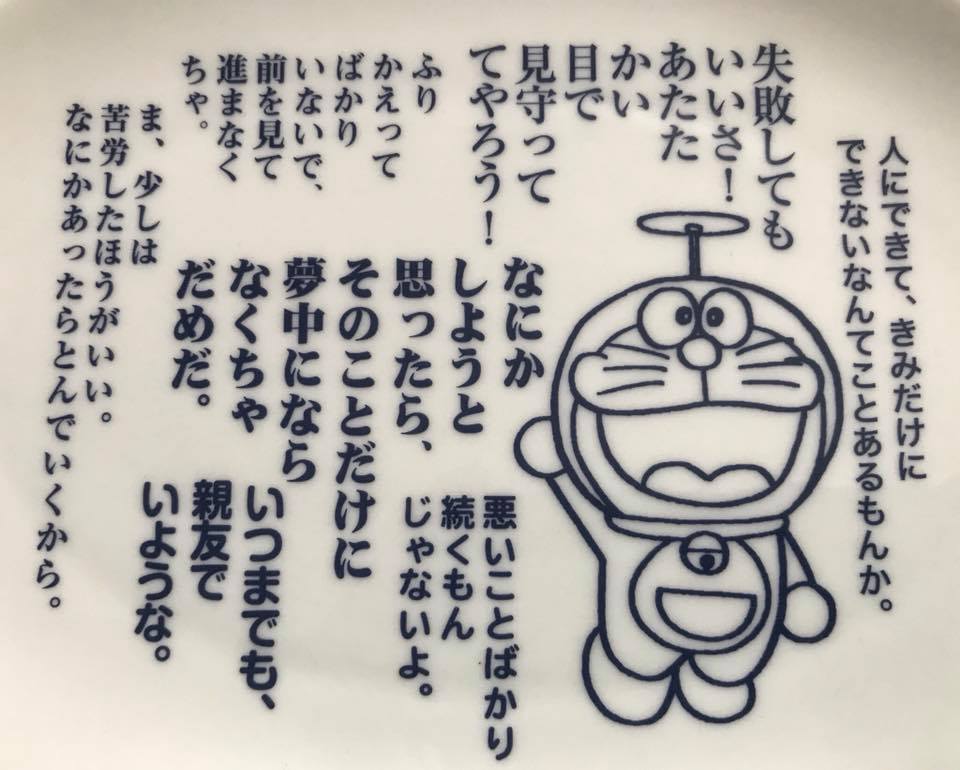 人にできて、きみだけに
できないなんてことあるもんか。
失敗しても
いいさ！
あたた
かい
目で
見守って
てやろう！
ふり
かえって
ばかり
いないで、
前を見て
進まなく
ちゃ。
なにか
しようと
思ったら、
そのことだけに
夢中になら
なくちゃ
だめだ。
ま、少しは
苦労したほうがいい。
なにかあったらとんでいくから。
悪いことばかり
続くもん
じゃないよ。
いつまでも、
親友で
いような。